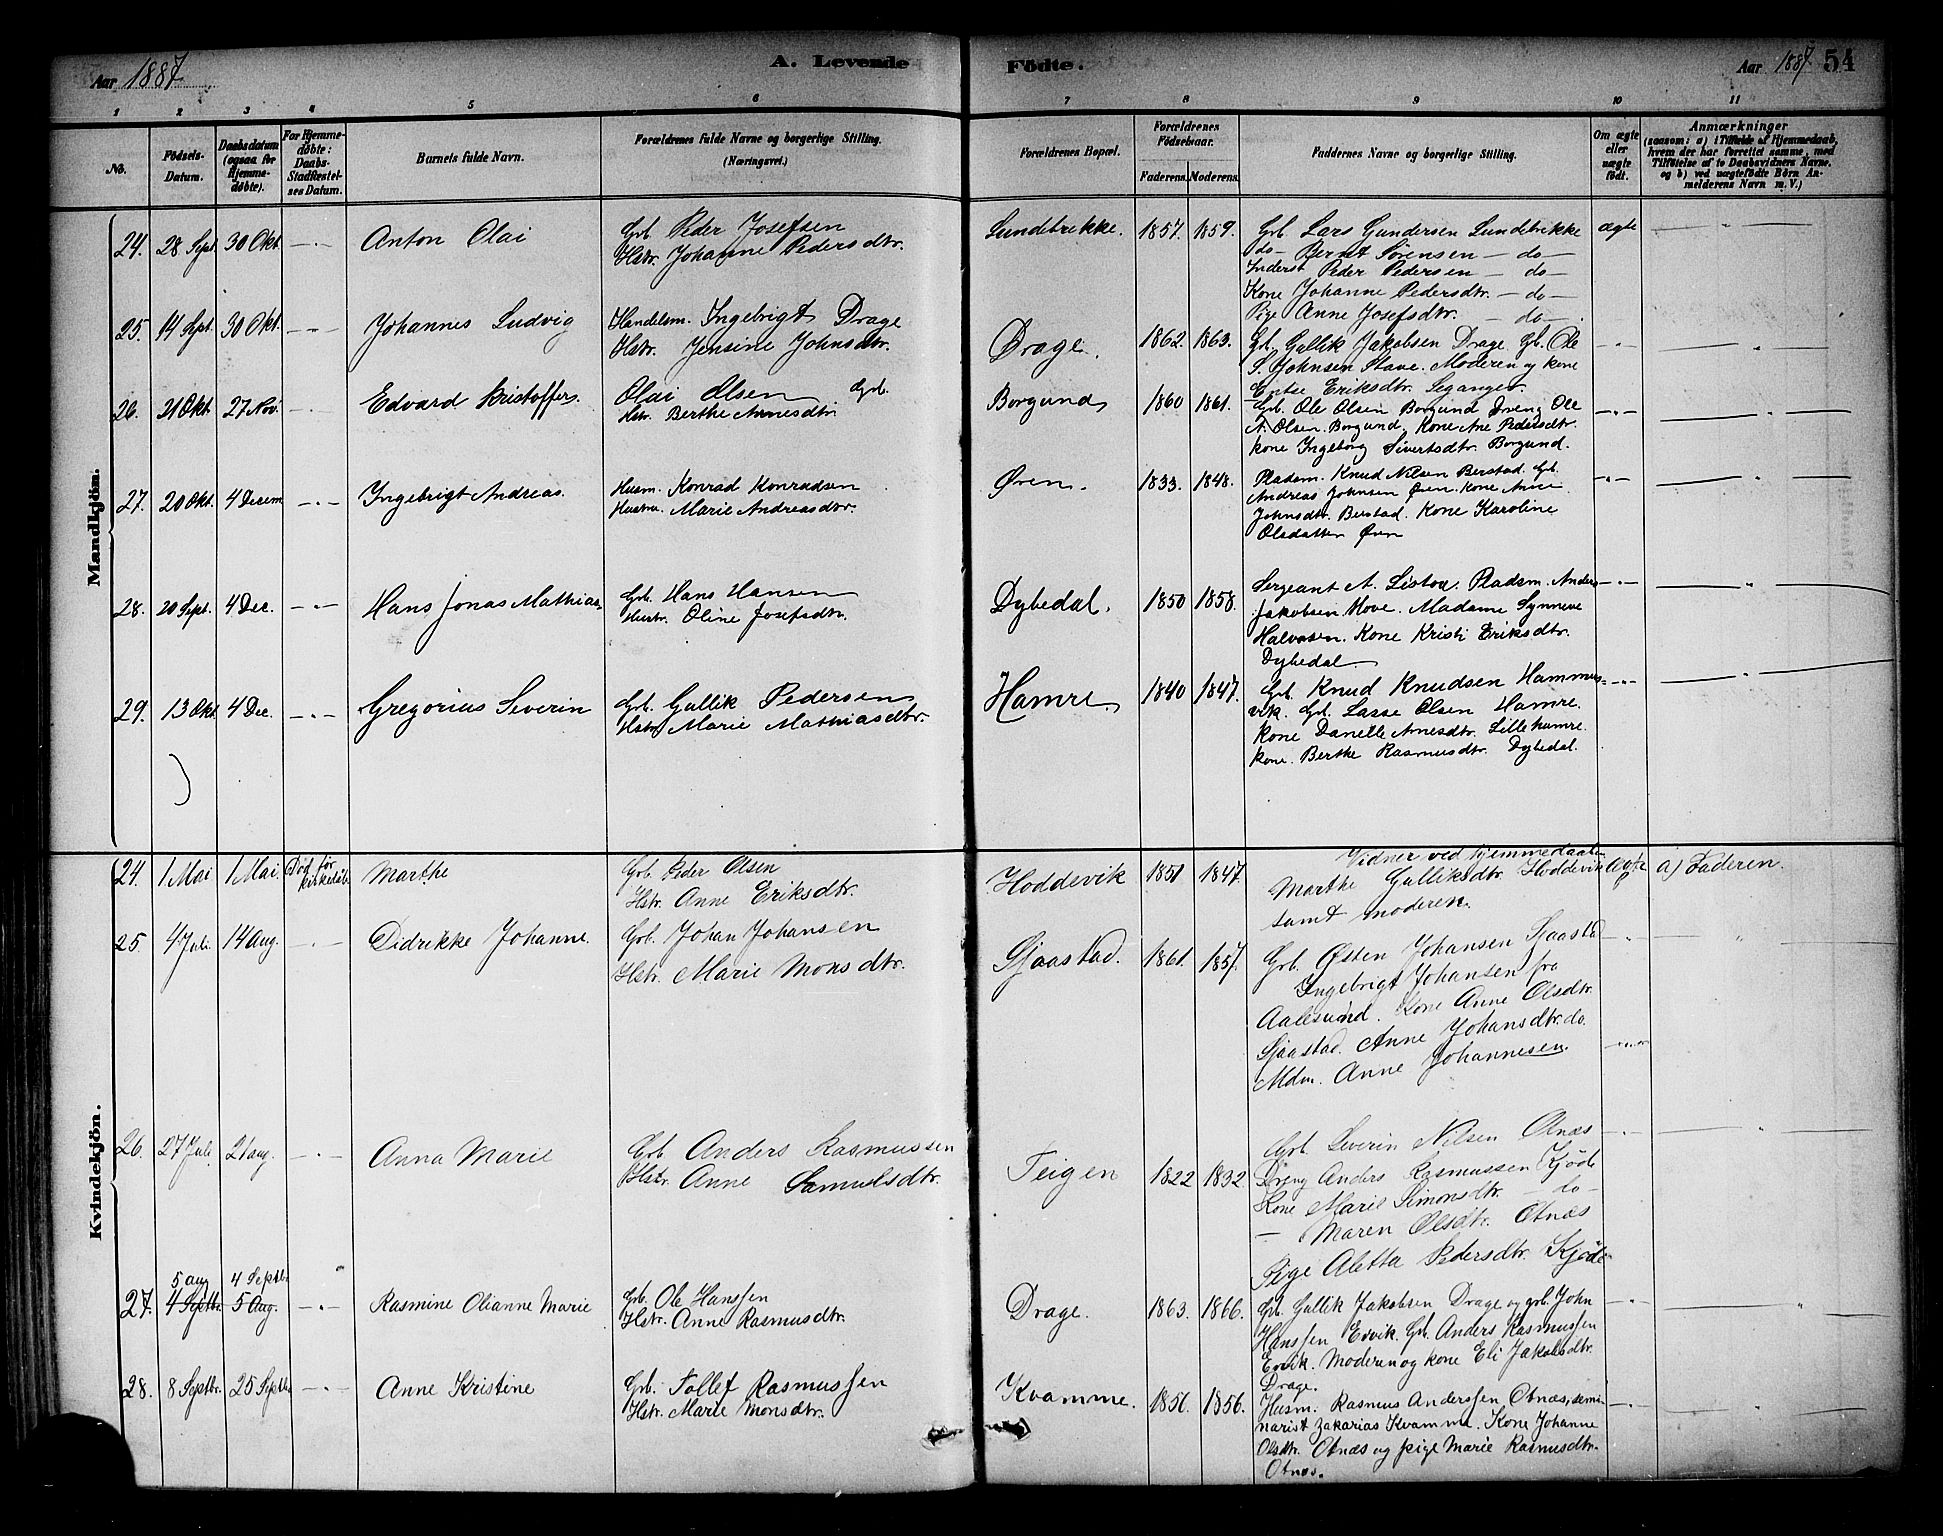 Aar 1887
A. Levende
Födte.
Aar 1887 54
1 2 3 4 5 6 7 8 9 10 11
No.
Födsels-
Datum.
Daabsdatum
(ogsaa for
Hjemme-
döbte).
For Hjemme-
döbte:
Daabs-
Stadfæstel-
ses Datum.
Barnets fulde Navn.
Forældrenes fulde Navne og borgerlige Stilling.
(Næringsvei.)
Forældrenes Bopæl.
Forældrenes
Födselsaar.
Faderens. Moderens.
Faddernes Navne og borgerlige Stilling.
Om ægte
eller
uægte
födt.
Anmærkninger
(saasom: a) i Tilfælde af Hjemmedaab,
hvem der har forrettet samme, med
Tilföielse af to Daabsvidners Navne,
og b) ved uægtefödte Börn An-
melderens Navn m. V.)
Mandkjön.
24. 28 Sept. 30 Okt. -"- Anton Olai
Grb. Peder Josefsen
Hstr. Johanne Pedersdtr.
Lundebrekke. 1857. 1859.
Grb. Lars Gundersen Lundebrekke
do - Bernt Sørensen - do -
Inderst Peder Pedersen - do -
Kone Johanne Pedersdtr. - do -
Pige Anne Josefsdtr. - do -
ægte -"-
25. 14 Spt. 30 Okt. -"- Johannes Ludvig
Handelsm. Ingebrigt Drage
Hstr. Jensine Johnsdtr.
Drage. 1862. 1863.
Gb. Gullik Jakobsen Drage. Gb. Ole
S. Johnsen Stave. Moderen og kone
Eriksdtr. Seganger.
-"- -"-
26. 21 Okt. 27 Nov. -"- Edvard Kristoffer.
Olai Olsen Grb.
Hstr. Berthe Annesdtr.
Borgund 1860 1861.
Grb. Ole Olsen Borgund Dreng Ole
A. Olsen. Borgund. Kone Ane Pedersdtr.
kone Ingeborg Sivertsdtr. Borgund.
-"- -"-
27. 20 Okt. 4 Decem -"- Ingebrigt Andreas.
Husm. Konrad Konradsen
Hustru. Marie Andreasdtr.
Ören. 1833. 1848.
Pladsm. Knud Nilsen Berstad. Grb.
Andreas Johnsen Ören. Kone Anne
Johnsdtr. Berstad. Kone Karoline
Olsdatter Ören
-"- -"-
28. 20 Sept. 4 Dec. -"- Hans Jonas Mathias
Grb. Hans Hansen
Hustr. Oline Josefsdtr.
Dybedal. 1850 1858.
Sergeant A. Listou. Pladsm. Anders
Jakobsen Hove. Madame Synneve
Halvosen. Kone Kristi Eriksdtr.
Dybedal
-"- -"-
29. 13 Okt. 4 Dec. -"- Gregorius Severin
Grb. Gullik Pedersen
Hstr. Marie Mathiasdtr.
Hamre 1840 1847.
Grb. Knud Knudsen Hammers-
vik. Grb. Lasse Olsen Hamre.
kone Danelle Arnesdtr. Lillehamre.
kone. Berthe Rasmusdtr. Dybedal.
-"- -"-
Kvindekjön.
24. 1 Mai 1 Mai Död før
kirkedåb
Marthe
Grb. Peder Olsen
Hstr. Anne Eriksdtr.
Hoddevik 1851 1847.
Vidner ved hjemmedaaben
Marthe Gulliksdtr. Hoddevik
samt moderen.
ægte a) Faderen.
25 4 Juli. 14 Aug. -"- Didrikke Johanne.
Grb. Johan Johansen
Hstr. Marie Monsdtr.
Sjaastad. 1861. 1857.
Grb. Østen Johansen Sjaastad
Ingebrigt Johansen fra
Aalesund. Kone Anne Olsdtr.
Sjaastad. Anne Johansdtr. do.
Mdm. Anne Johannesen.
-"- -"-
26. 27 Juli. 21 aug. -"- Anna Marie
Grb. Anders Rasmussen
Hstr. Anne Samuelsdtr.
Teigen 1822 1832.
Grb. Severin Nilsen Otnæs
Dreng Anders Rasmussen Kjöde
Kone Marie Simonsdtr. - do -
- Maren Olsdtr. Otnæs
Pige Aletta Pedersdtr. Kjöde
-"- -"-
5 aug 4 Septbr.
27. 4 Septbr. 5 Aug. -"- Rasmine Olianne Marie
Grb. Ole Hanssen
Hstr. Anne Rasmusdtr.
Drage. 1863. 1866.
Grb. Gullik Jakobsen Drage og grb. John
Hanssen Ervik. Grb. Anders Rasmussen
Ervik. Moderen og kone Eli Jakobsdtr.
Drage.
-"- -"-
28. 8 Septbr. 25 Septbr. -"- Anne Kristine
Grb. Tollef Rasmussen
Hstr. Marie Monsdtr.
Kvamme. 1856. 1856.
Husm. Rasmus Anderssen Otnæs, semi-
narist Zakarias Kvamme. Kone Johanne
Olsdtr. Otnæs og pige Marie Rasmusdtr.
Otnæs.
-"- -"-